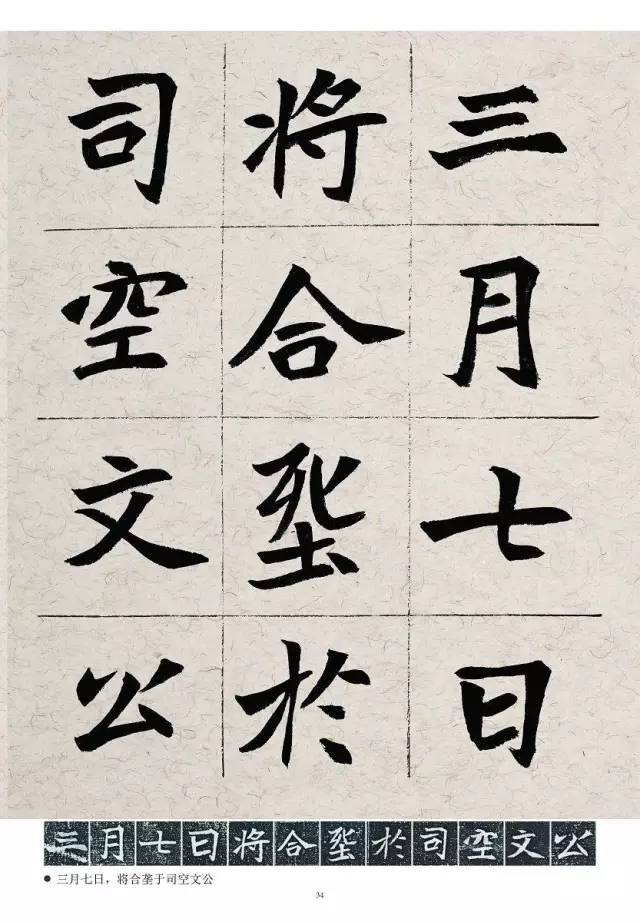 三月七日
将合於
司空文公
三月七日将合於司空文公
● 三月七日，将合垄于司空文公
34